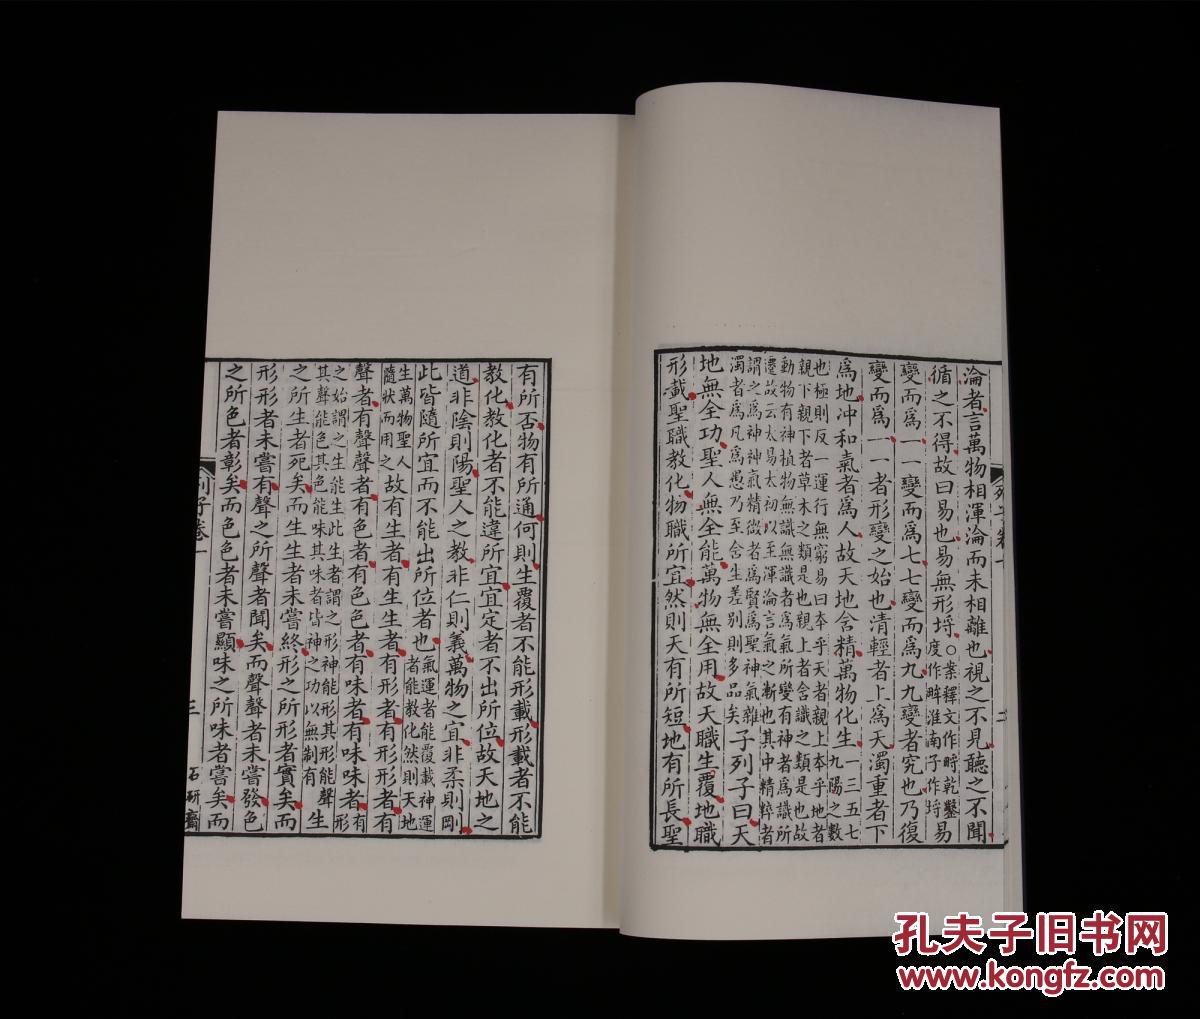 淪者言萬物相渾淪而未相離也視之不見聽之不聞
循之不得故曰易也易無形埒○案釋文作時乾鑿度作畔淮南子作埒易
變而爲一一變而爲七七變而爲九九變者究也乃復
變而爲一一者形變之始也清輕者上爲天濁重者下
爲地冲和氣者爲人故天地含精萬物化生一三五七九陽之數
也極則反一運行無窮易曰本乎天者親上本乎地者
親下親下者草木之類是也親上者含識之類是也故
動物有神植物無識無識者爲氣所變有神者爲識所
遷故云太易太初以至渾淪言氣之漸也其中精粹者
謂之爲神神氣精微者爲賢爲聖神氣雜
濁者爲凡爲愚乃至含生差別則多品矣子列子曰天
地無全功聖人無全能萬物無全用故天職生覆地職
形載聖職教化物職所宜然則天有所短地有所長聖
列子卷一
有所否物有所通何則生覆者不能形載形載者不能
教化教化者不能違所宜宜定者不出所位故天地之
道非陰則陽聖人之教非仁則義萬物之宜非柔則剛
此皆隨所宜而不能出所位者也氣運者能覆載神運者能教化然則天地
生萬物聖人隨狀而用之故有生者有生生者有形者有形形者有
聲者有聲聲者有色者有色色者有味者有味味者有形
之始謂之生能生此生者謂之形神能形其形能聲
其聲能色其色能味其味者皆神之功以無制有生
之所生者死矣而生生者未嘗終形之所形者實矣而
形形者未嘗有聲之所聲者聞矣而聲聲者未嘗發色
之所色者彰矣而色色者未嘗顯味之所味者嘗矣而
列子卷一
三
石研齋
孔夫子旧书网
www.kongfz.com